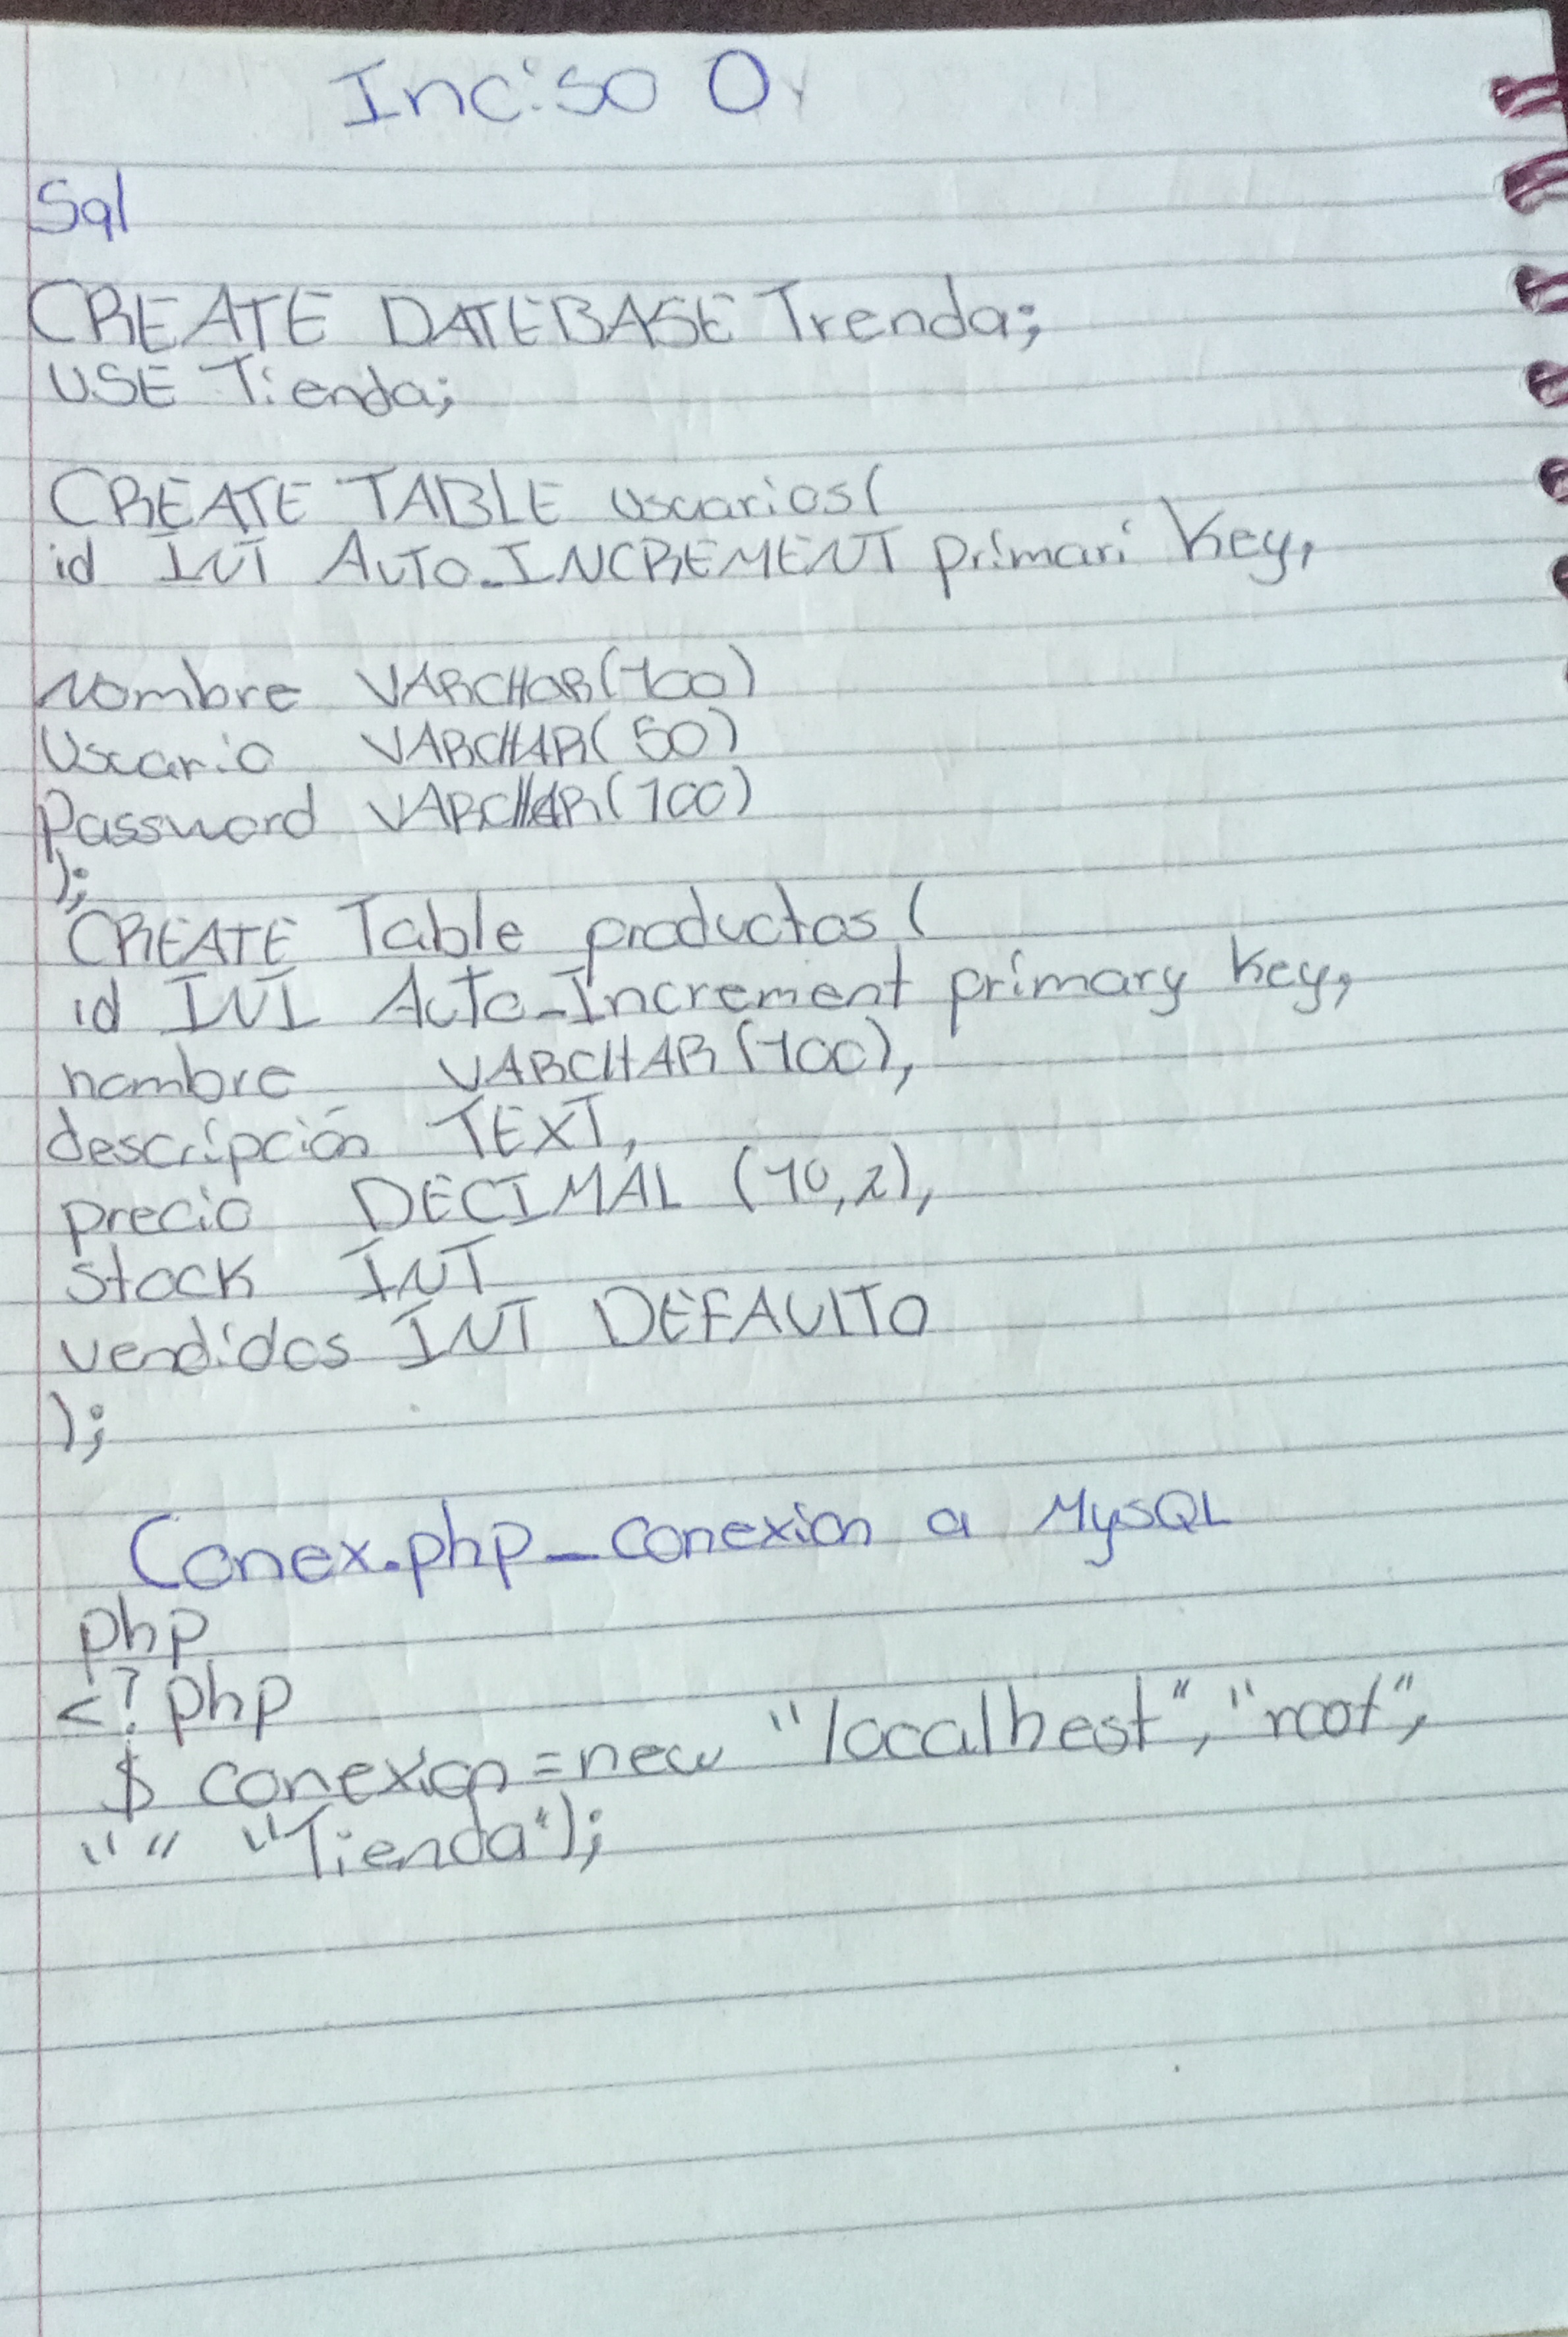 Inciso O
Sql
CREATE DATEBASE Trenda;
USE Tienda;
CREATE TABLE usuarios(
id INT AUTO_INCREMENT primari Key,
Nombre VARCHAR(100)
Usuario VARCHAR(50)
Password VARCHAR(100)
);
CREATE Table productos(
id INT AuTo-Increment primary key,
nombre VARCHAR(100),
descripción TEXT,
precio DECIMAL (10,2),
stock INT
vendidos INT DEFAULTO
);
Conex.php_conexion a MySQL
php
<?php
$ conexion=new "localhest","root",
"" "Tienda");